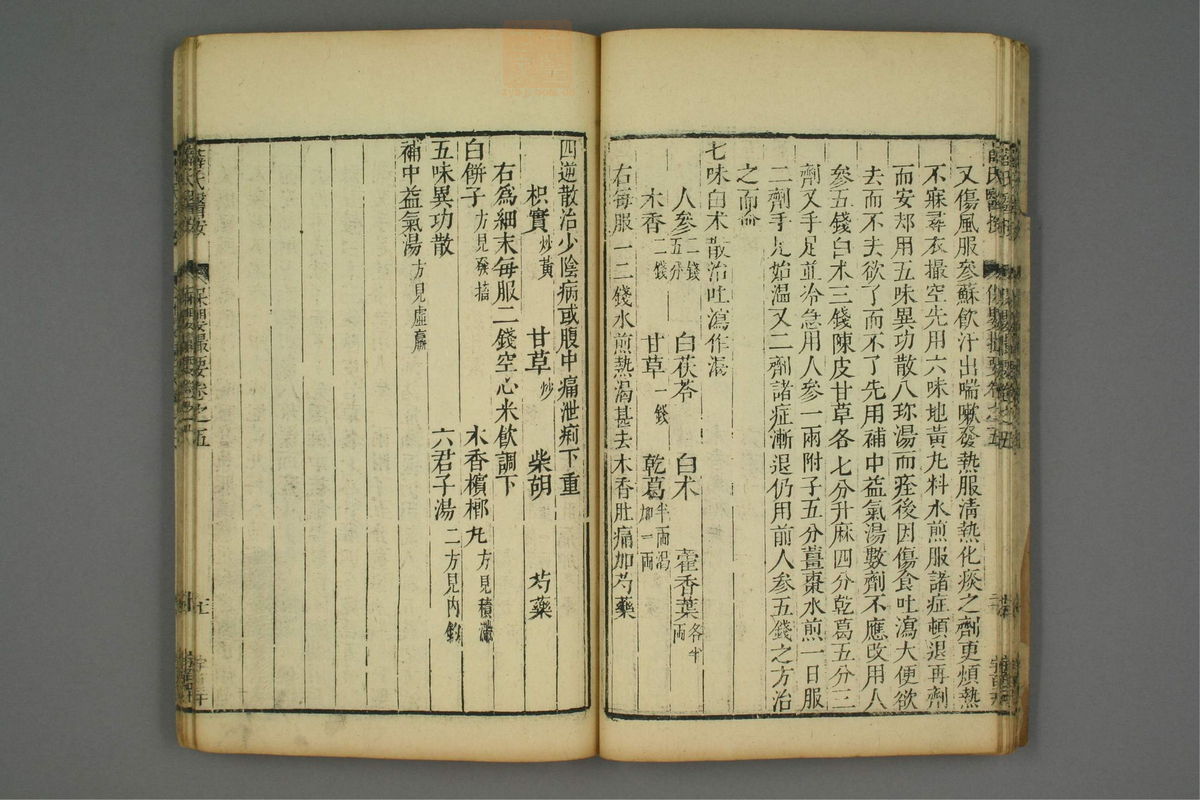 又傷風服參蘇飲汗出喘嗽發熱服清熱化痰之劑更煩熱
不寐尋衣撮空先用六味地黃丸料水煎服諸症頓退再劑
而安郟用五味異功散八珎湯而痊後因傷食吐瀉大便欲
去而不去欲了而不了先用補中益氣湯數劑不應改用人
參五錢白术三錢陳皮甘草各七分升麻四分乾葛五分三
劑又手足並冷急用人參一兩附子五分薑棗水煎一日服
二劑手足始溫又二劑諸症漸退仍用前人參五錢之方治
之而愈
七味白术散治吐瀉作渴
人參二錢五分 白茯苓 白术 藿香葉各半兩
木香二錢 甘草一錢 乾葛半兩渴加一兩
右每服一二錢水煎熱渴甚去木香肚痛加芍藥
四逆散治少陰病或腹中痛泄痢下重
枳實炒黃 甘草炒 柴胡 芍藥
右爲細末每服二錢空心米飲調下
白餅子方見發搐 木香檳榔丸方見積滯
五味異功散 六君子湯二方見內釣
補中益氣湯方見虛羸
薛氏醫按
保嬰撮要卷之五